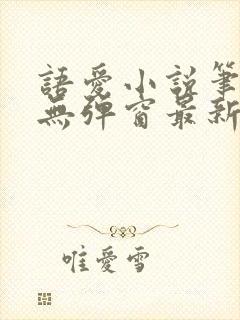 語愛小説筆
無彈窗最新
唯愛雪